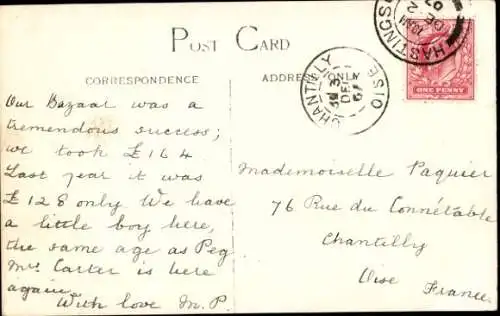 POST CARD
CORRESPONDENCE
ADDRESS ONLY
HASTINGS
DE 2
07
CHANTILLY
OISE
DEC
07
ONE PENNY
Our Bazaar was a
tremendous success;
we took £164
Last year it was
£128 only We have
a little boy here,
the same age as Peg
Mrs. Carter is here
again.
With love M.P.
Mademoiselle Paquier
76 Rue du Connétable
Chantilly
Oise France